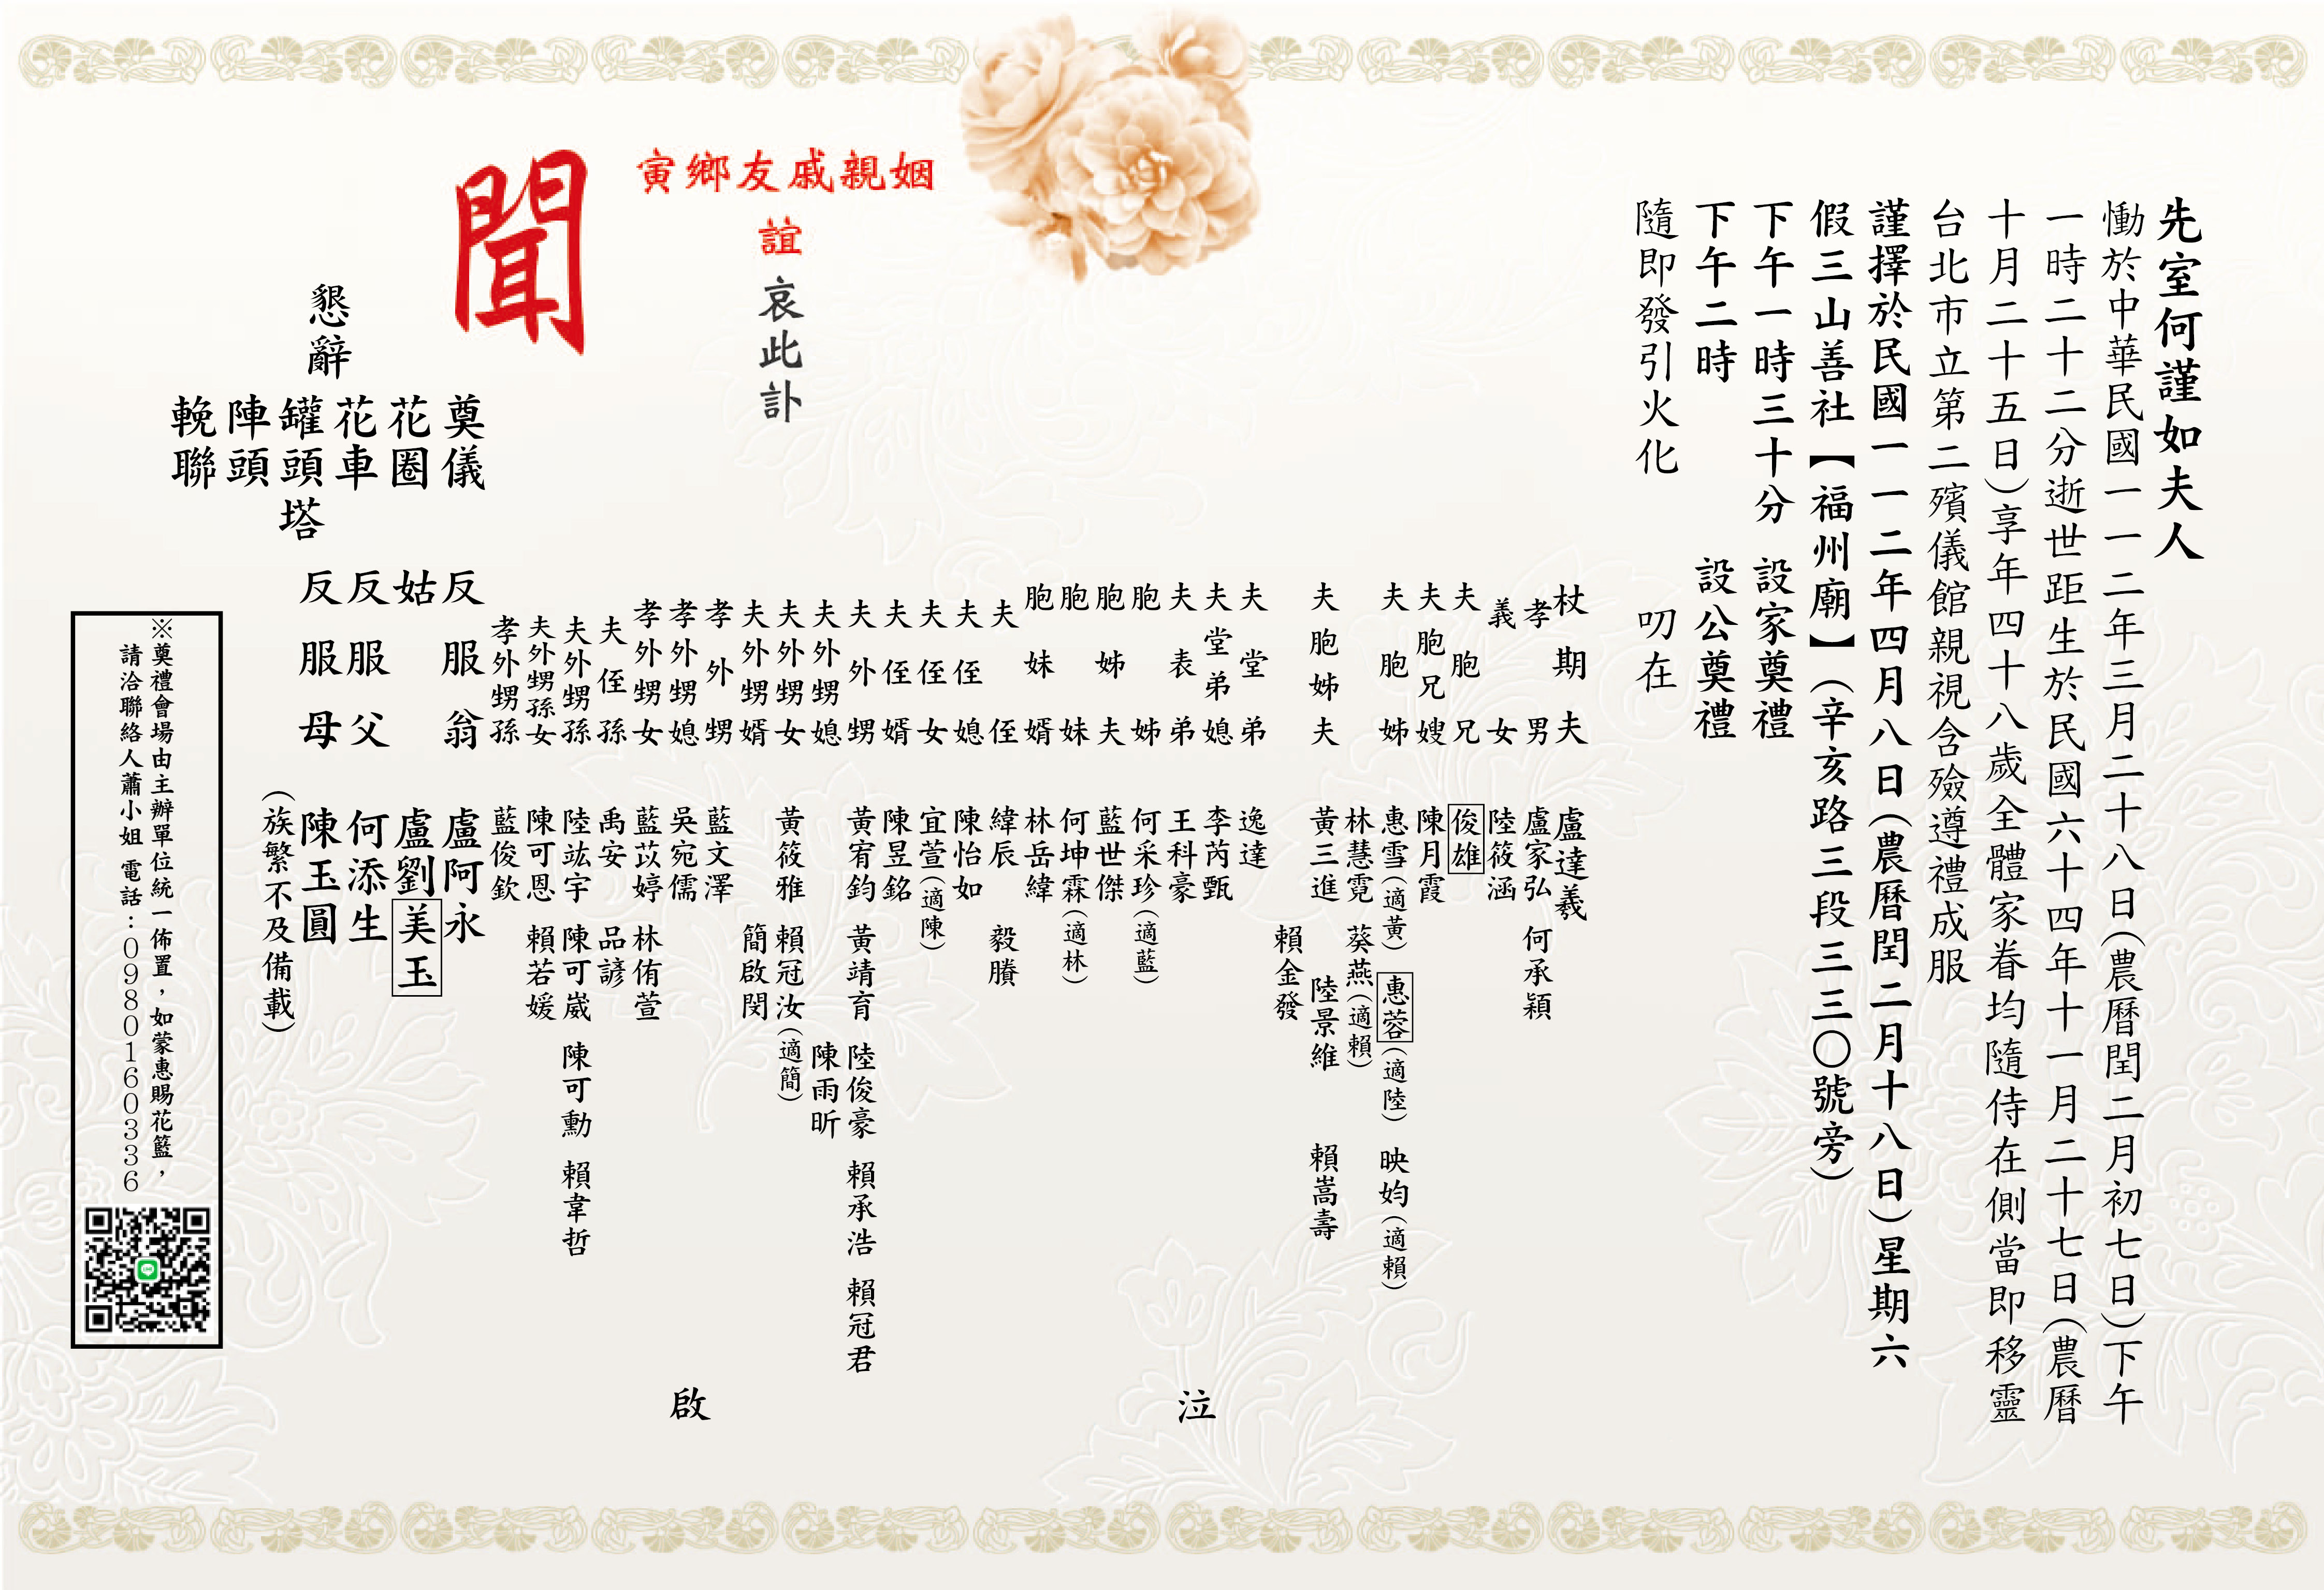 先室何謹如夫人
慟於中華民國一一二年三月二十八日(農曆閏二月初七日)下午
一時二十二分逝世距生於民國六十四年十一月二十七日(農曆
十月二十五日)享年四十八歲全體家眷均隨侍在側當即移靈
台北市立第二殯儀館親視含殮遵禮成服
謹擇於民國一一二年四月八日(農曆閏二月十八日)星期六
假三山善社【福州廟】(辛亥路三段三三〇號旁)
下午一時三十分 設家奠禮
下午二時 設公奠禮
隨即發引火化 叨在
杖期夫 盧達羲
孝男 盧家弘 何承穎
義女 陸筱涵
夫胞兄 俊雄
夫胞兄嫂 陳月霞
夫胞姊 惠雪(適黃) 惠蓉(適陸) 映妁(適賴)
林慧霓 葵燕(適賴)
夫胞姊夫 黃三進 陸景維 賴嵩壽
賴金發
夫堂弟 逸達
夫堂弟媳 李芮甄
夫表弟 王科豪
胞姊 何采珍(適藍)
胞姊夫 藍世傑
胞妹 何坤霖(適林)
胞妹婿 林岳緯
夫侄 緯辰 毅賸
夫侄媳 陳怡如
夫侄女 宜萱(適陳)
夫侄婿 陳昱銘
夫外甥 黃宥鈞 黃靖育 陸俊豪 賴承浩 賴冠君
夫外甥媳 陳雨昕
夫外甥女 黃筱雅 賴冠汝(適簡)
夫外甥婿 簡啟閔
孝外甥 藍文澤
孝外甥媳 吳宛儒
孝外甥女 藍苡婷 林侑萱
夫侄孫 禹安 品諺
夫外甥孫 陸竑宇 陳可崴 陳可勳 賴韋哲
夫外甥孫女 陳可恩 賴若媛
孝外甥孫 藍俊欽
反服翁 盧阿永
姑 盧劉美玉
反服父 何添生
反服母 陳玉圓
(族繁不及備載)
泣
啟
姻親戚友鄉寅
誼
哀此訃
聞
懇辭
奠儀
花圈
花車
罐頭塔
陣頭
輓聯
※奠禮會場由主辦單位統一佈置，如蒙惠賜花籃，
請洽聯絡人蕭小姐 電話：0980160336